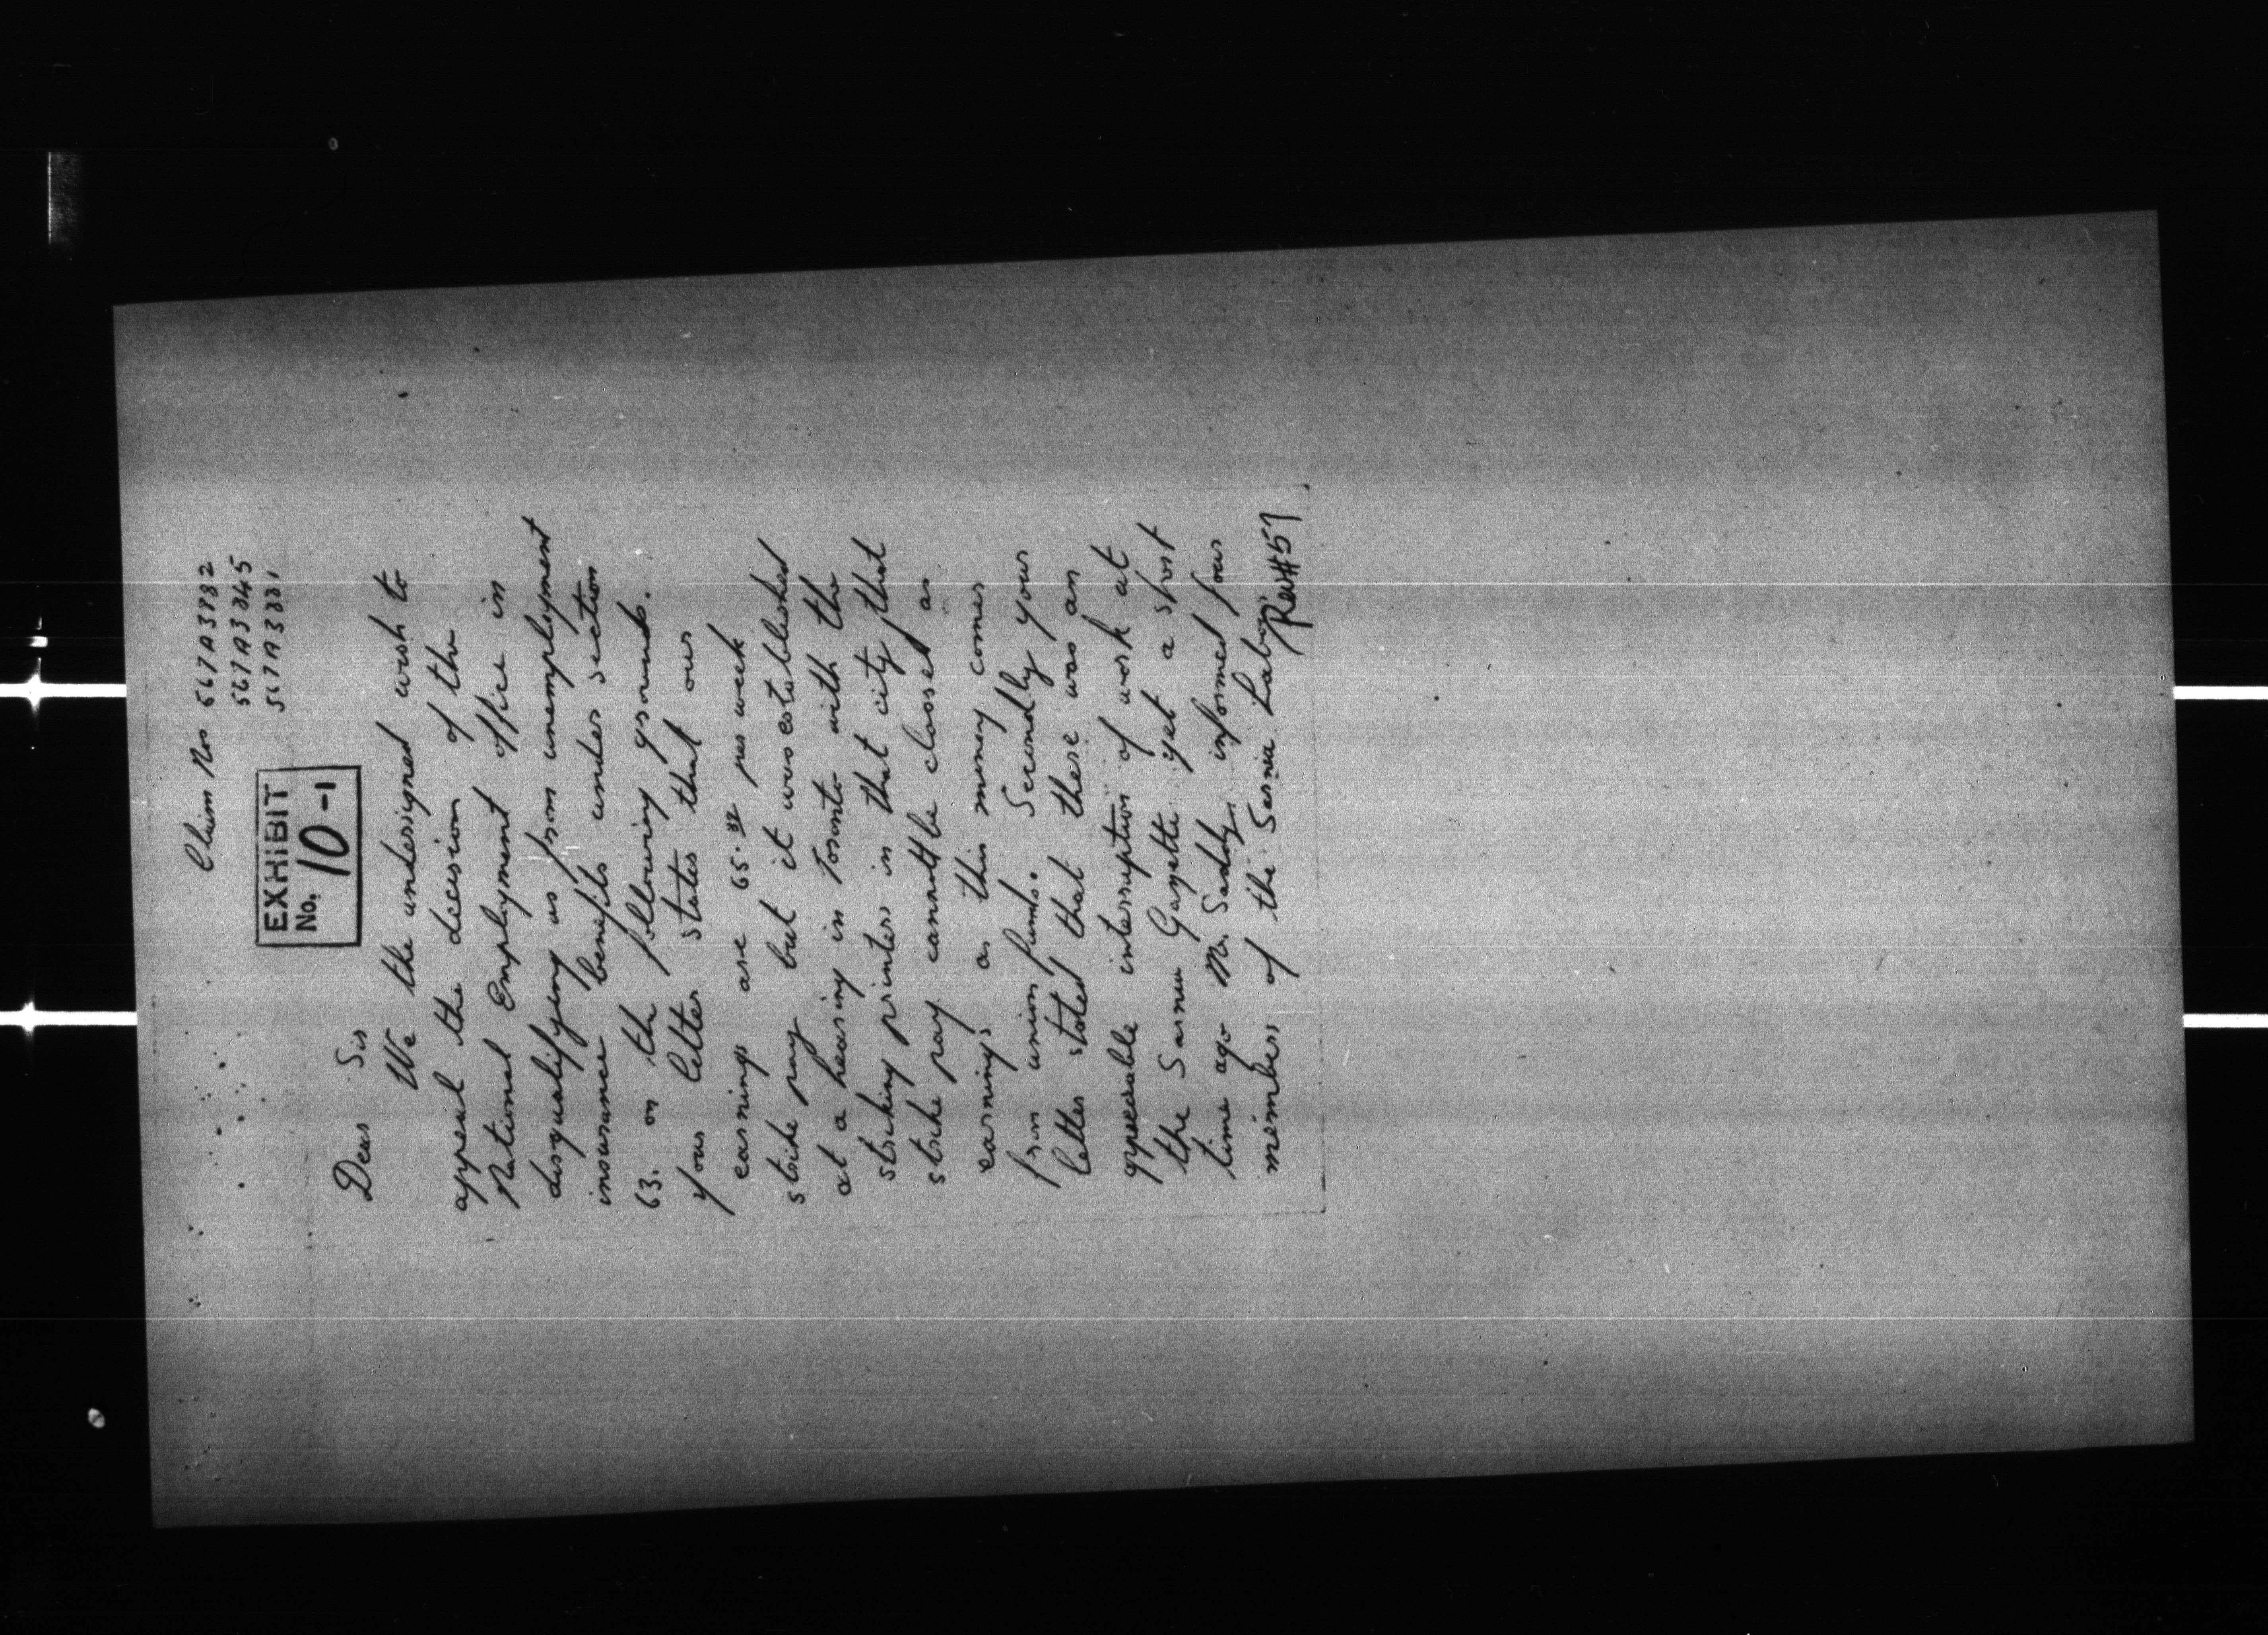 Claim Nos 567A3782
567A3345
567A3331
EXHIBIT
No. 10-1
Dear Sir
We the undersigned wish to
appeal the decision of the
National Employment office in
disqualifying us from unemployment
insurance benefits under section
63. on the following grounds.
your letter states that our
earnings are 65. per week
strike pay but it was established
at a hearing in Toronto with the
striking printers in that city that
strike pay cannot be classed as
earnings as this money comes
from union funds. Secondly your
letter stated that there was an
appreciable interruption of work at
the Sarnia Gazette yet a short
time ago Mr. informed four
members of the Sarnia Labour
#57